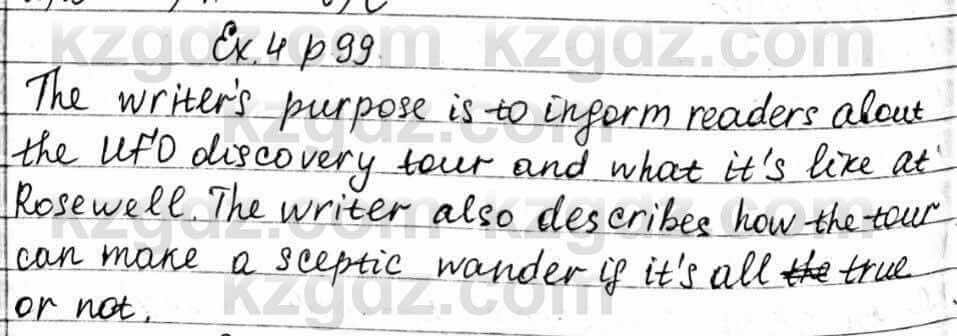 Ex. 4 p 99.
The writer's purpose is to inform readers about
the UFO discovery tour and what it's like at
Rosewell. The writer also describes how the tour
can make a sceptic wander if it's all the true
or not.
kzgdz.com kzgdz.com
kzgdz.com kzgdz.com
kzgdz.com kzgdz.com